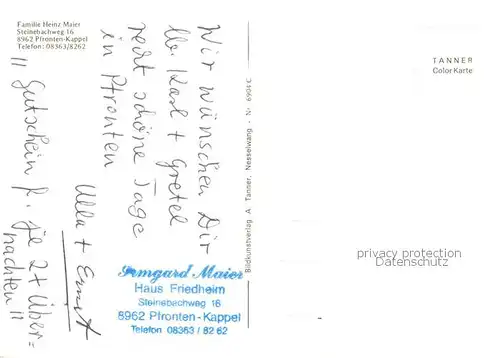 Familie Heinz Maier
Steinebachweg 16
8962 Pfronten-Kappel
Telefon: 08363/8262
Wir wünschen Dir
lb. Karl + Gretel
recht schöne Tage
in Pfronten
Ulla + Ernst
!! Gutschein f. je 2 + Über=
nachten !!
Irmgard Maier
Haus Friedheim
Steinebachweg 16
8962 Pfronten-Kappel
Telefon 08363 / 82 62
Bildkunstverlag A. Tanner, Nesselwang - Nº 6904 C
TANNER
Color Karte
privacy protection
Datenschutz